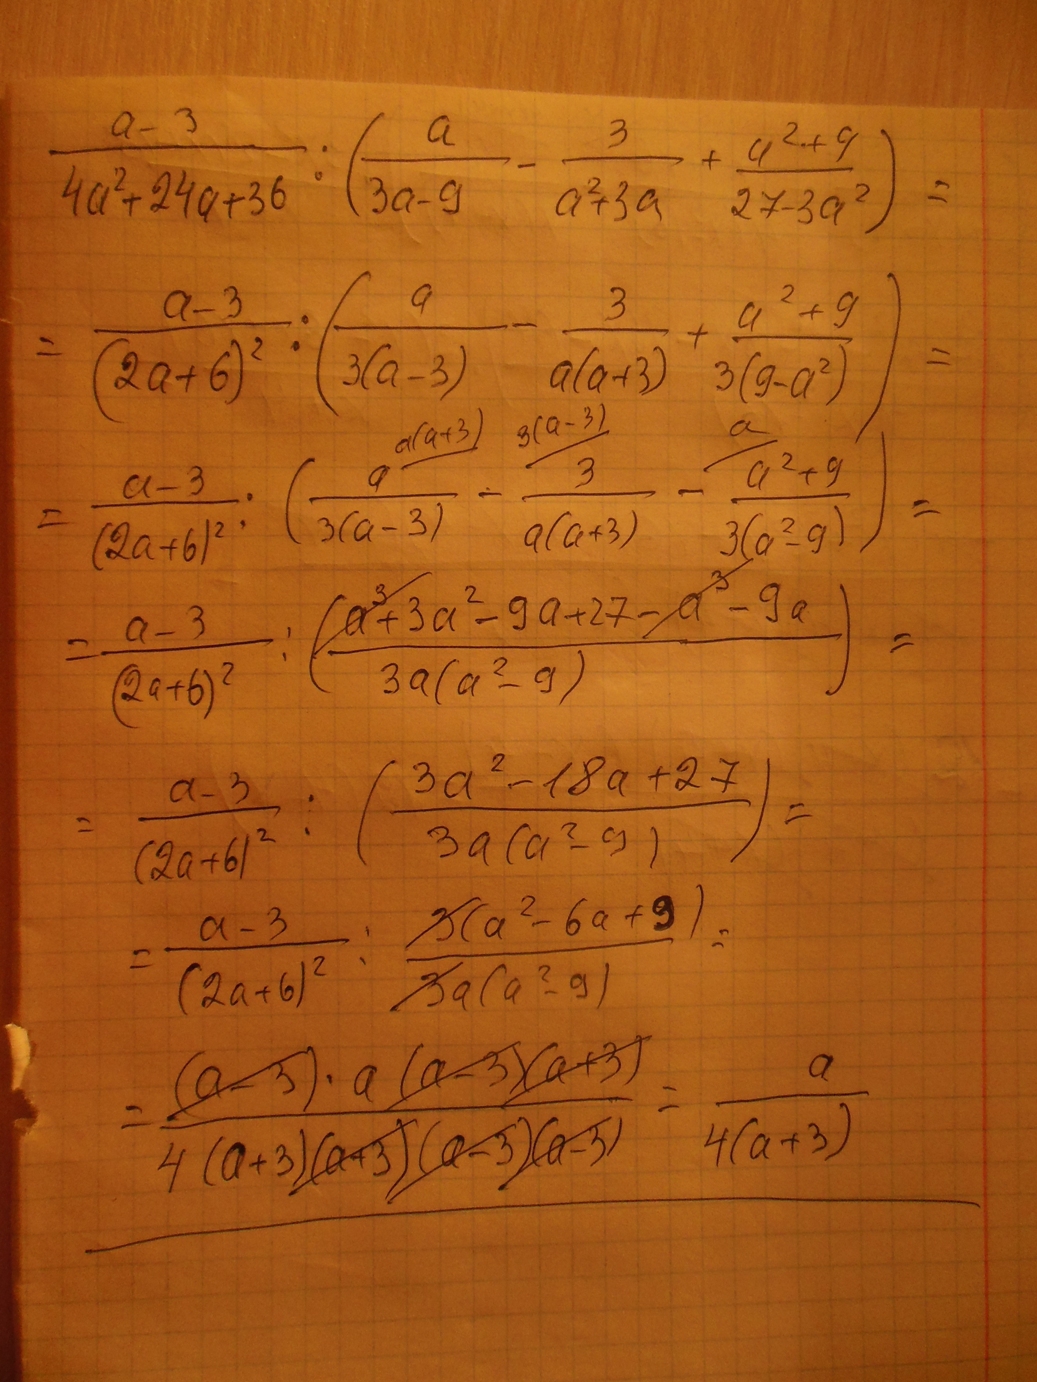 (a-3)/(4a²+24a+36) : (a/(3a-9) - 3/(a²+3a) + (a²+9)/(27-3a²)) =
= (a-3)/(2a+6)² : (a/(3(a-3)) - 3/(a(a+3)) + (a²+9)/(3(9-a²))) =
a(a+3) 3(a-3) a
= (a-3)/(2a+6)² : (a/(3(a-3)) - 3/(a(a+3)) - (a²+9)/(3(a²-9))) =
= (a-3)/(2a+6)² : ((a³+3a²-9a+27-a³-9a)/(3a(a²-9))) =
= (a-3)/(2a+6)² : ((3a²-18a+27)/(3a(a²-9))) =
= (a-3)/(2a+6)² : (3(a²-6a+9))/(3a(a²-9)) =
= ((a-3)·a(a-3)(a+3))/(4(a+3)(a+3)(a-3)(a-3)) = a/(4(a+3))